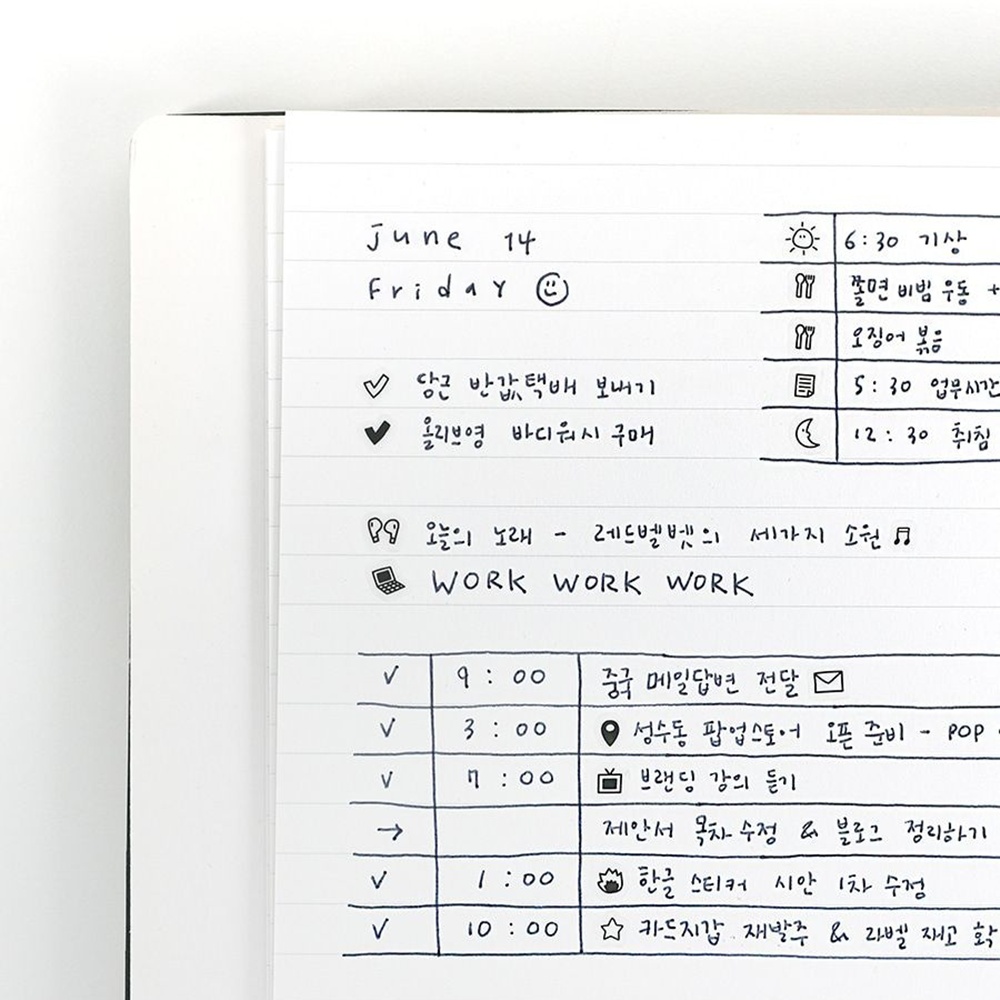 june 14
Friday
당근 반값택배 보내기
올리브영 바디워시 구매
6:30 기상
쫄면 비빔우동 +
오징어 볶음
5:30 업무시간
12:30 취침
오늘의 노래 - 레드벨벳의 세가지 소원
WORK WORK WORK
✓ 9:00 중국 메일답변 전달
✓ 3:00 성수동 팝업스토어 오픈 준비 - POP
✓ 7:00 브랜딩 강의 듣기
→ 제안서 목차 수정 & 블로그 정리하기
✓ 1:00 한글 스티커 시안 1차 수정
✓ 10:00 카드지갑 재발주 & 라벨 재고